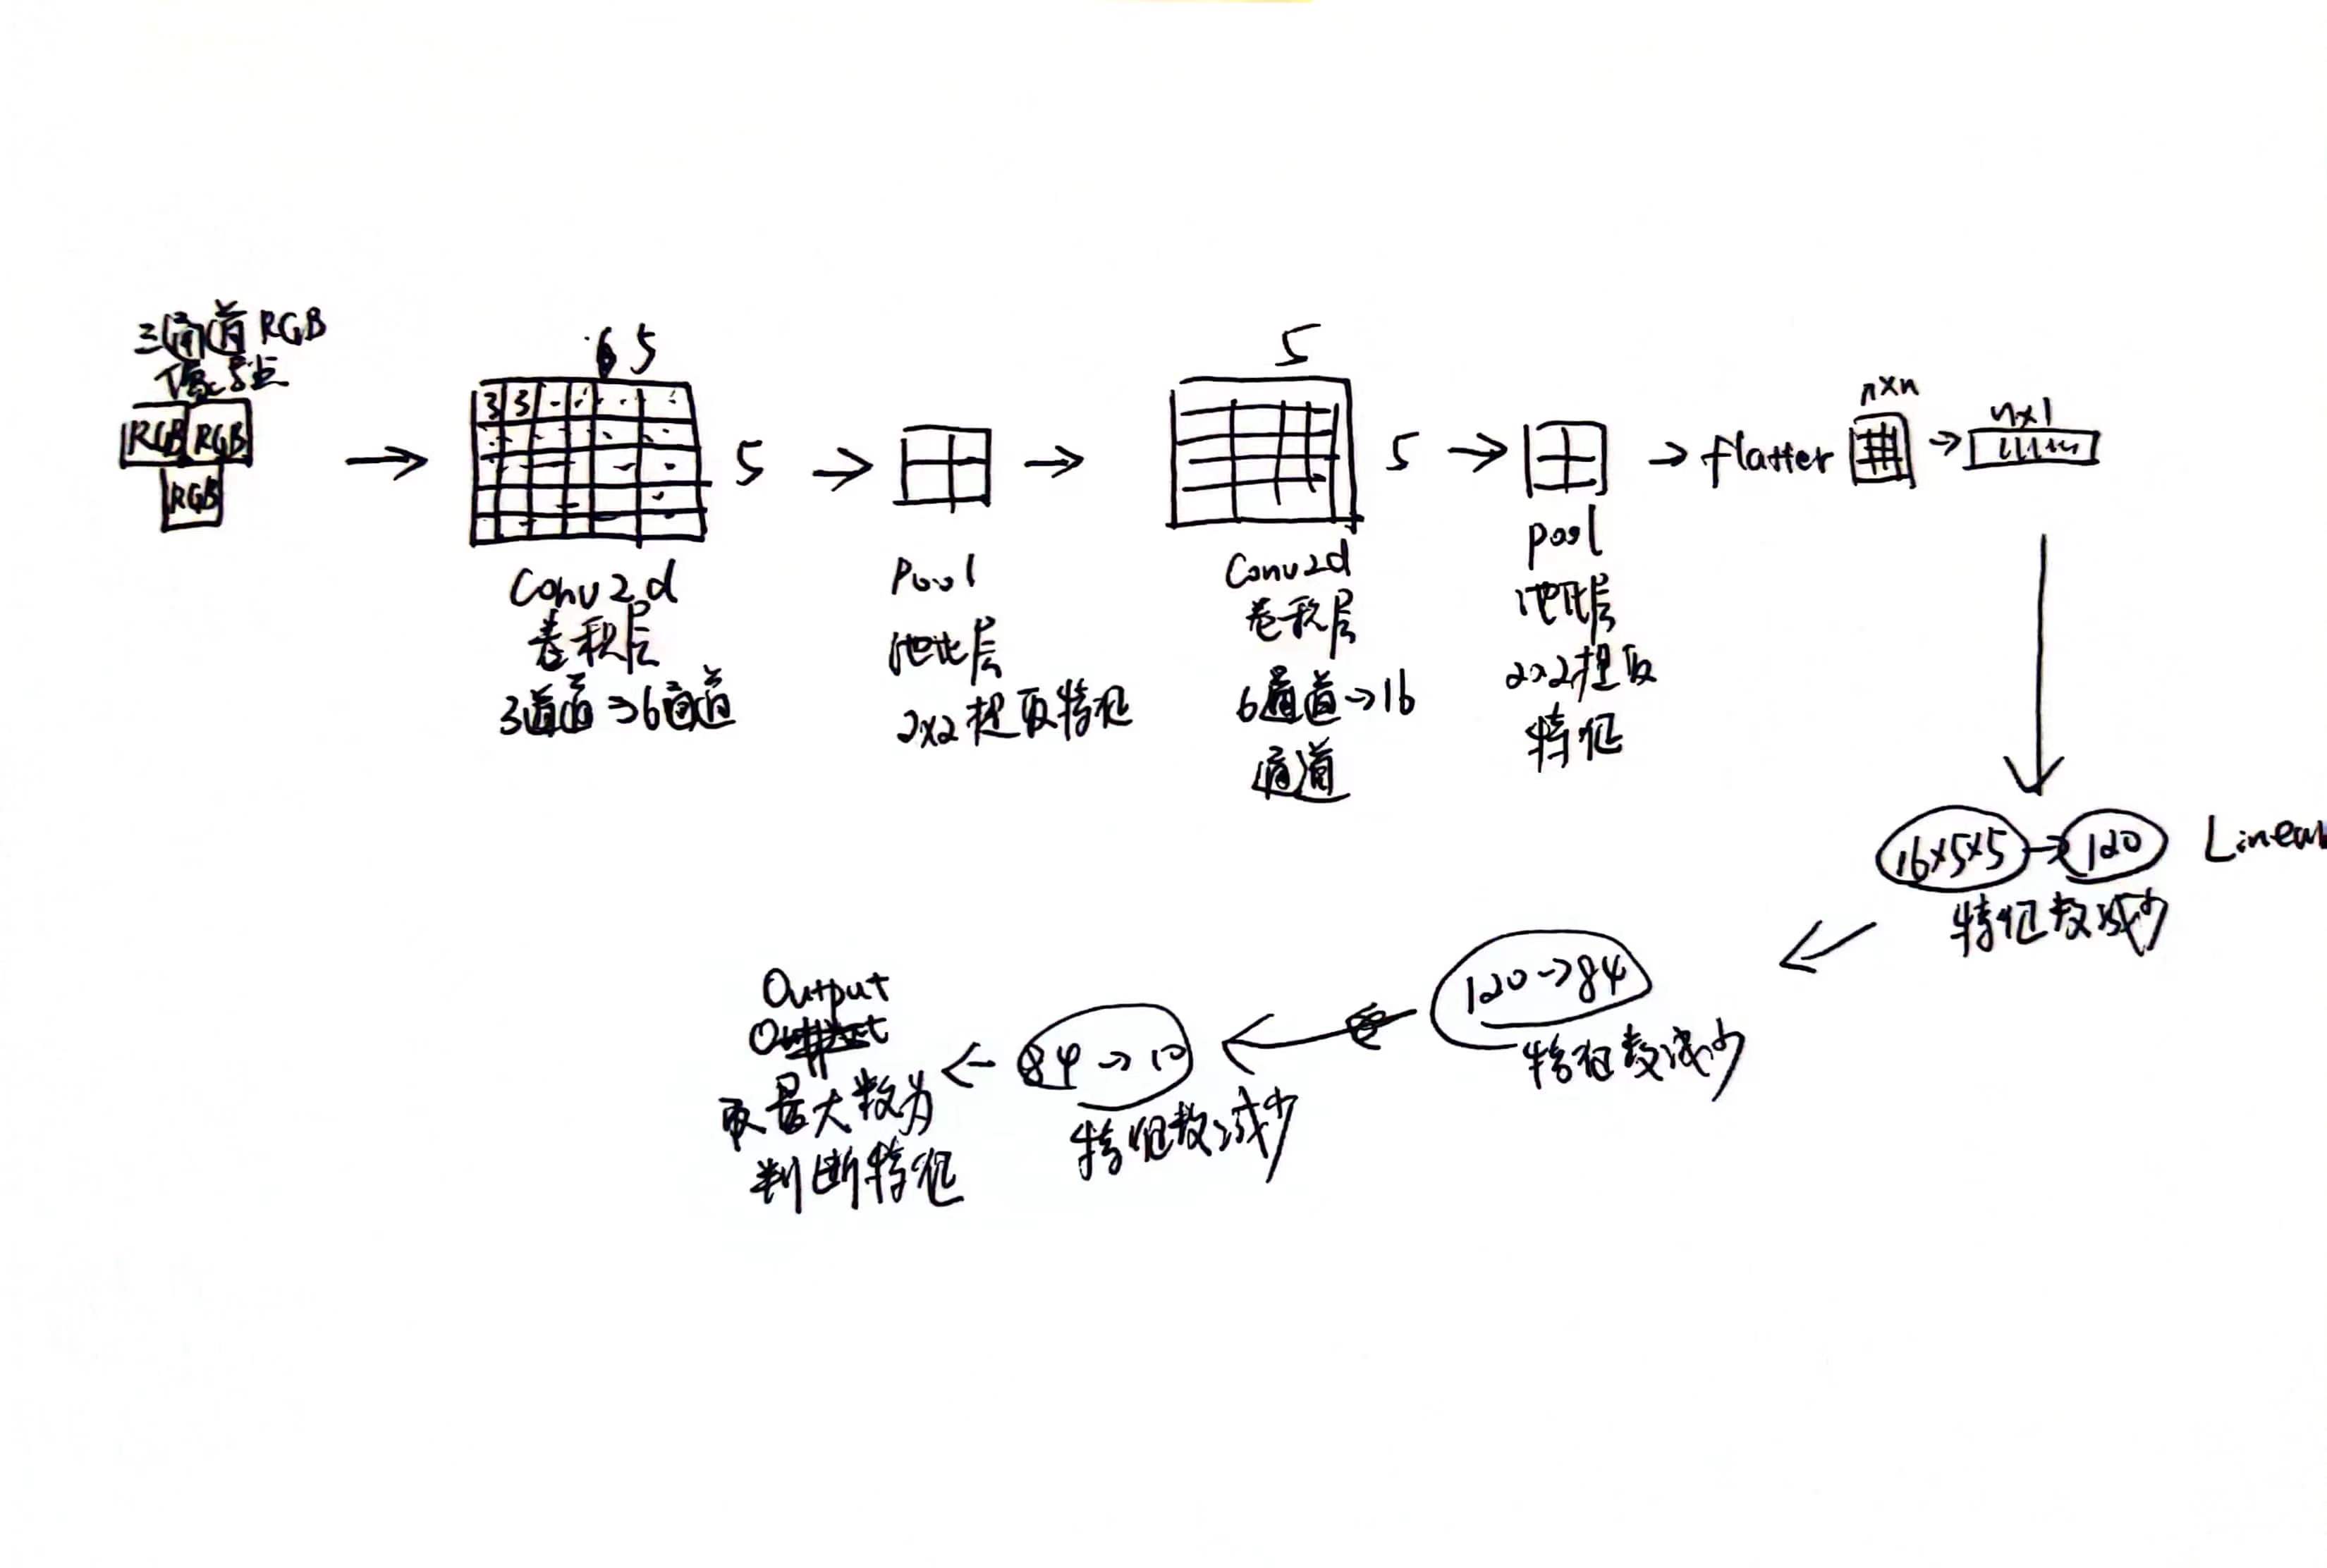 三通道RGB
RGB RGB
RGB
5
3 3
5
Conv2d
卷积层
3通道→6通道
Pool
池化层
2x2提取特征
5
5
Conv2d
卷积层
6通道→16
通道
pool
池化层
2x2提取
特征
flatter
n×n
n×1
16×5×5→120 Linear
特征数减少
120→84
特征数减少
84→10
特征数减少
Output
取最大数为
判断特征